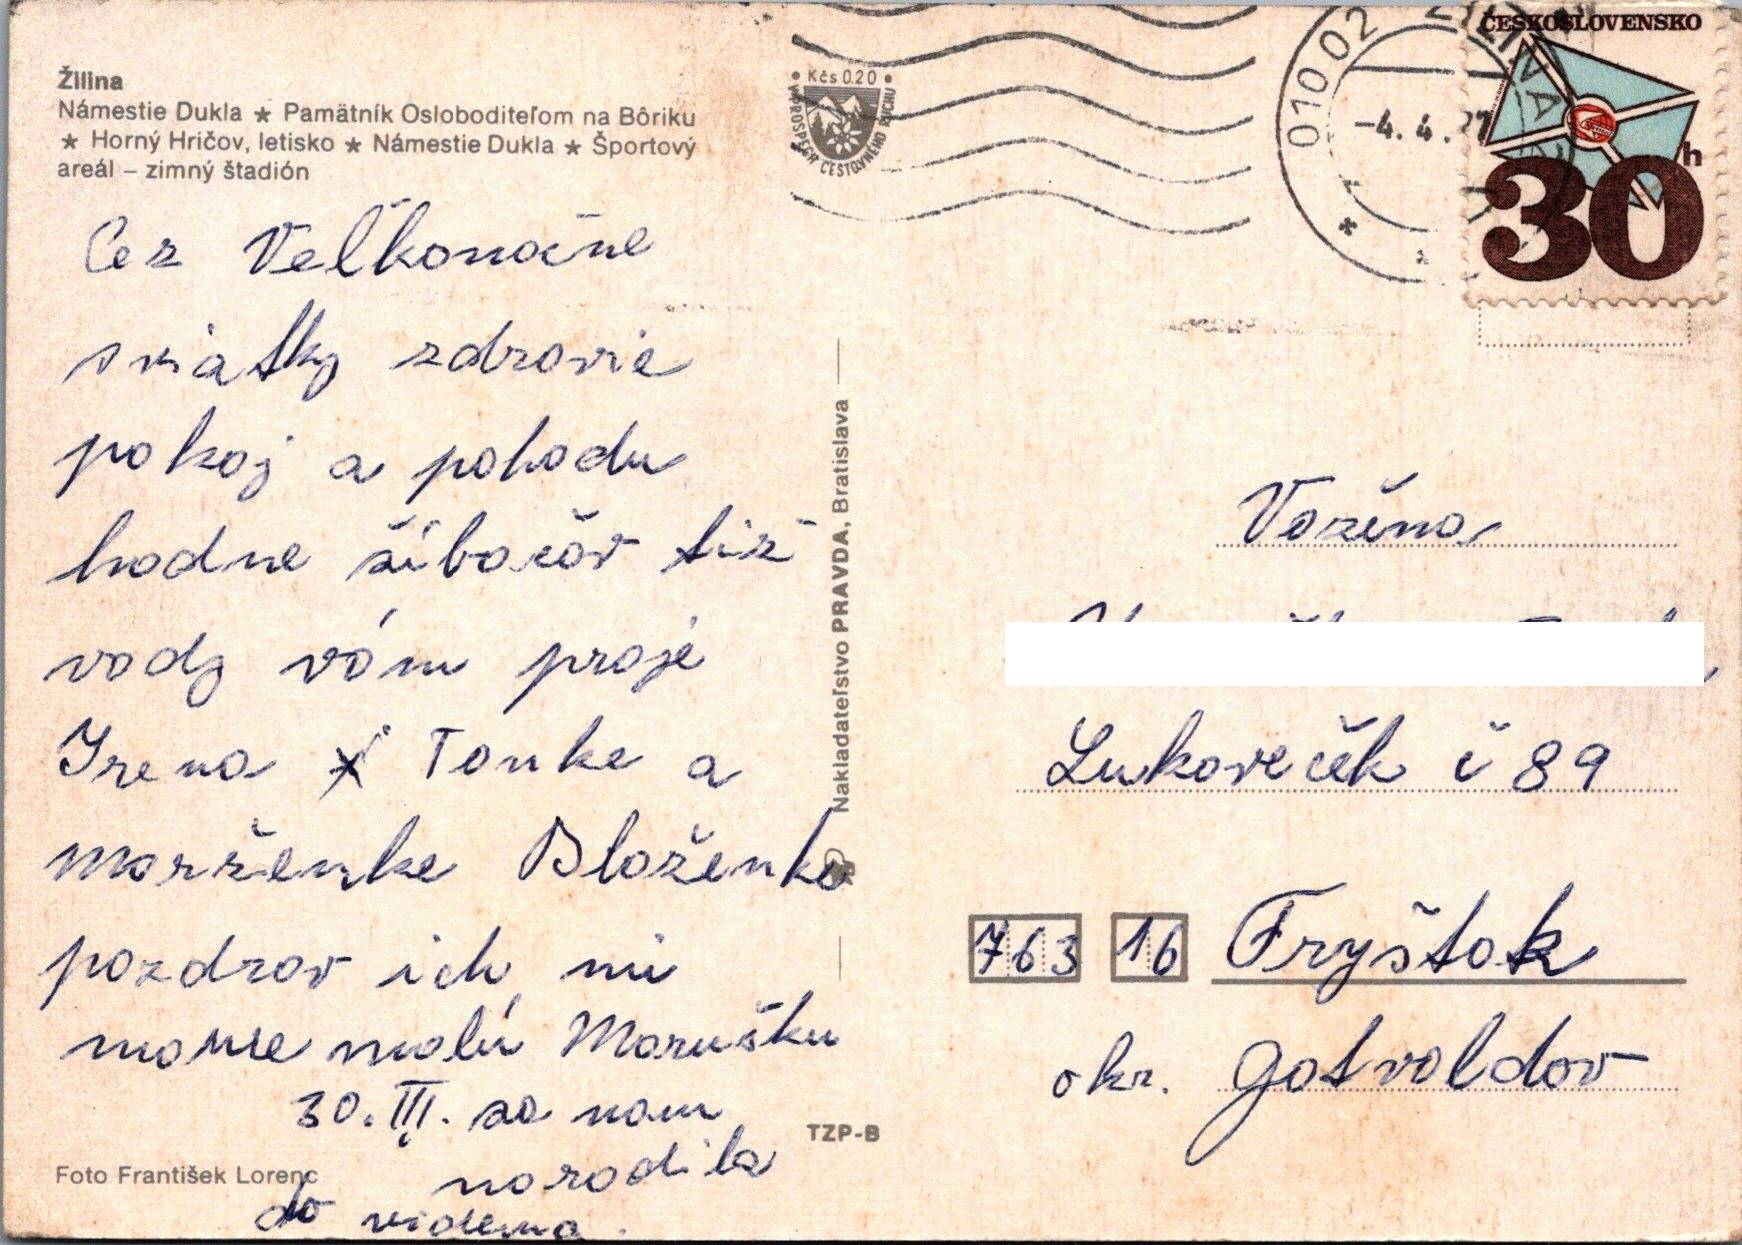 Žilina
Námestie Dukla ★ Pamätník Osloboditeľom na Bôriku
★ Horný Hričov, letisko ★ Námestie Dukla ★ Športový
areál – zimný štadión
Cez Veľkonočne
sviatky zdravie
pokoj a pohodu
hodne šibačov tiž
vody vám praje
Irena Tonke a
marženke Blaženke
pozdrav ich mi
mame malú Marušku
30. III. sa nam
narodila
do videnia.
Foto František Lorenc
• Kčs 0.20 •
CESTOVNÉHO RUCHU
Nakladateľstvo PRAVDA, Bratislava
TZP-B
010 02 ŽILINA
-4. 4.
ČESKOSLOVENSKO
30 h
Vážená
Lukoveček č 89
763 16 Fryšták
okr. Gotvaldov